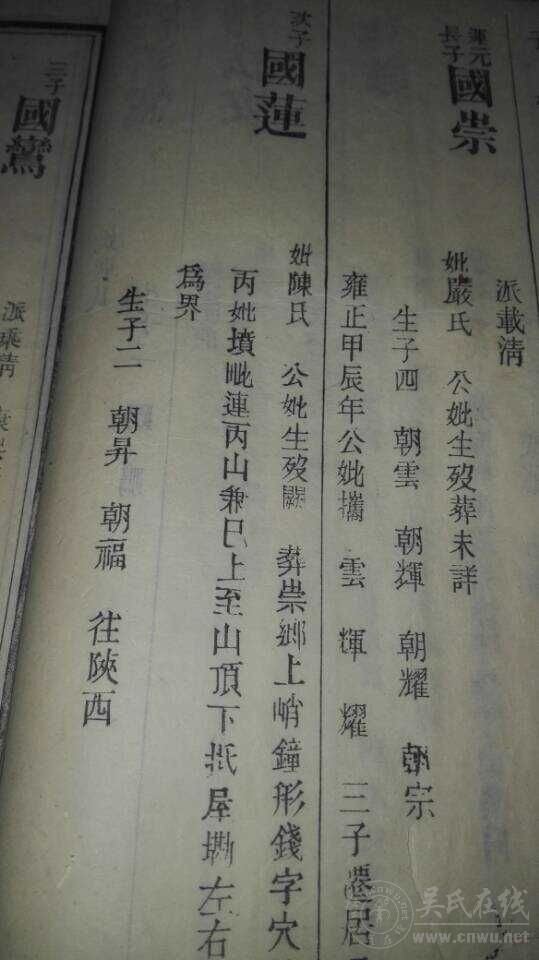 渾元
長子
國崇
派載清
妣嚴氏 公妣生歿葬未詳
生子四 朝雲 朝輝 朝耀 朝宗
雍正甲辰年公妣攜 雲 輝 耀 三子遷居
次子
國蓮
妣陳氏 公妣生歿闕 葬崇鄉上峭鐘形錢字穴
丙妣墳毗連丙山兼巳上至山頂下抵屋墈左右
為界
生子二 朝昇 朝福 往陝西
三子
國鸞
派乘清
吴氏在线
www.cnwu.net